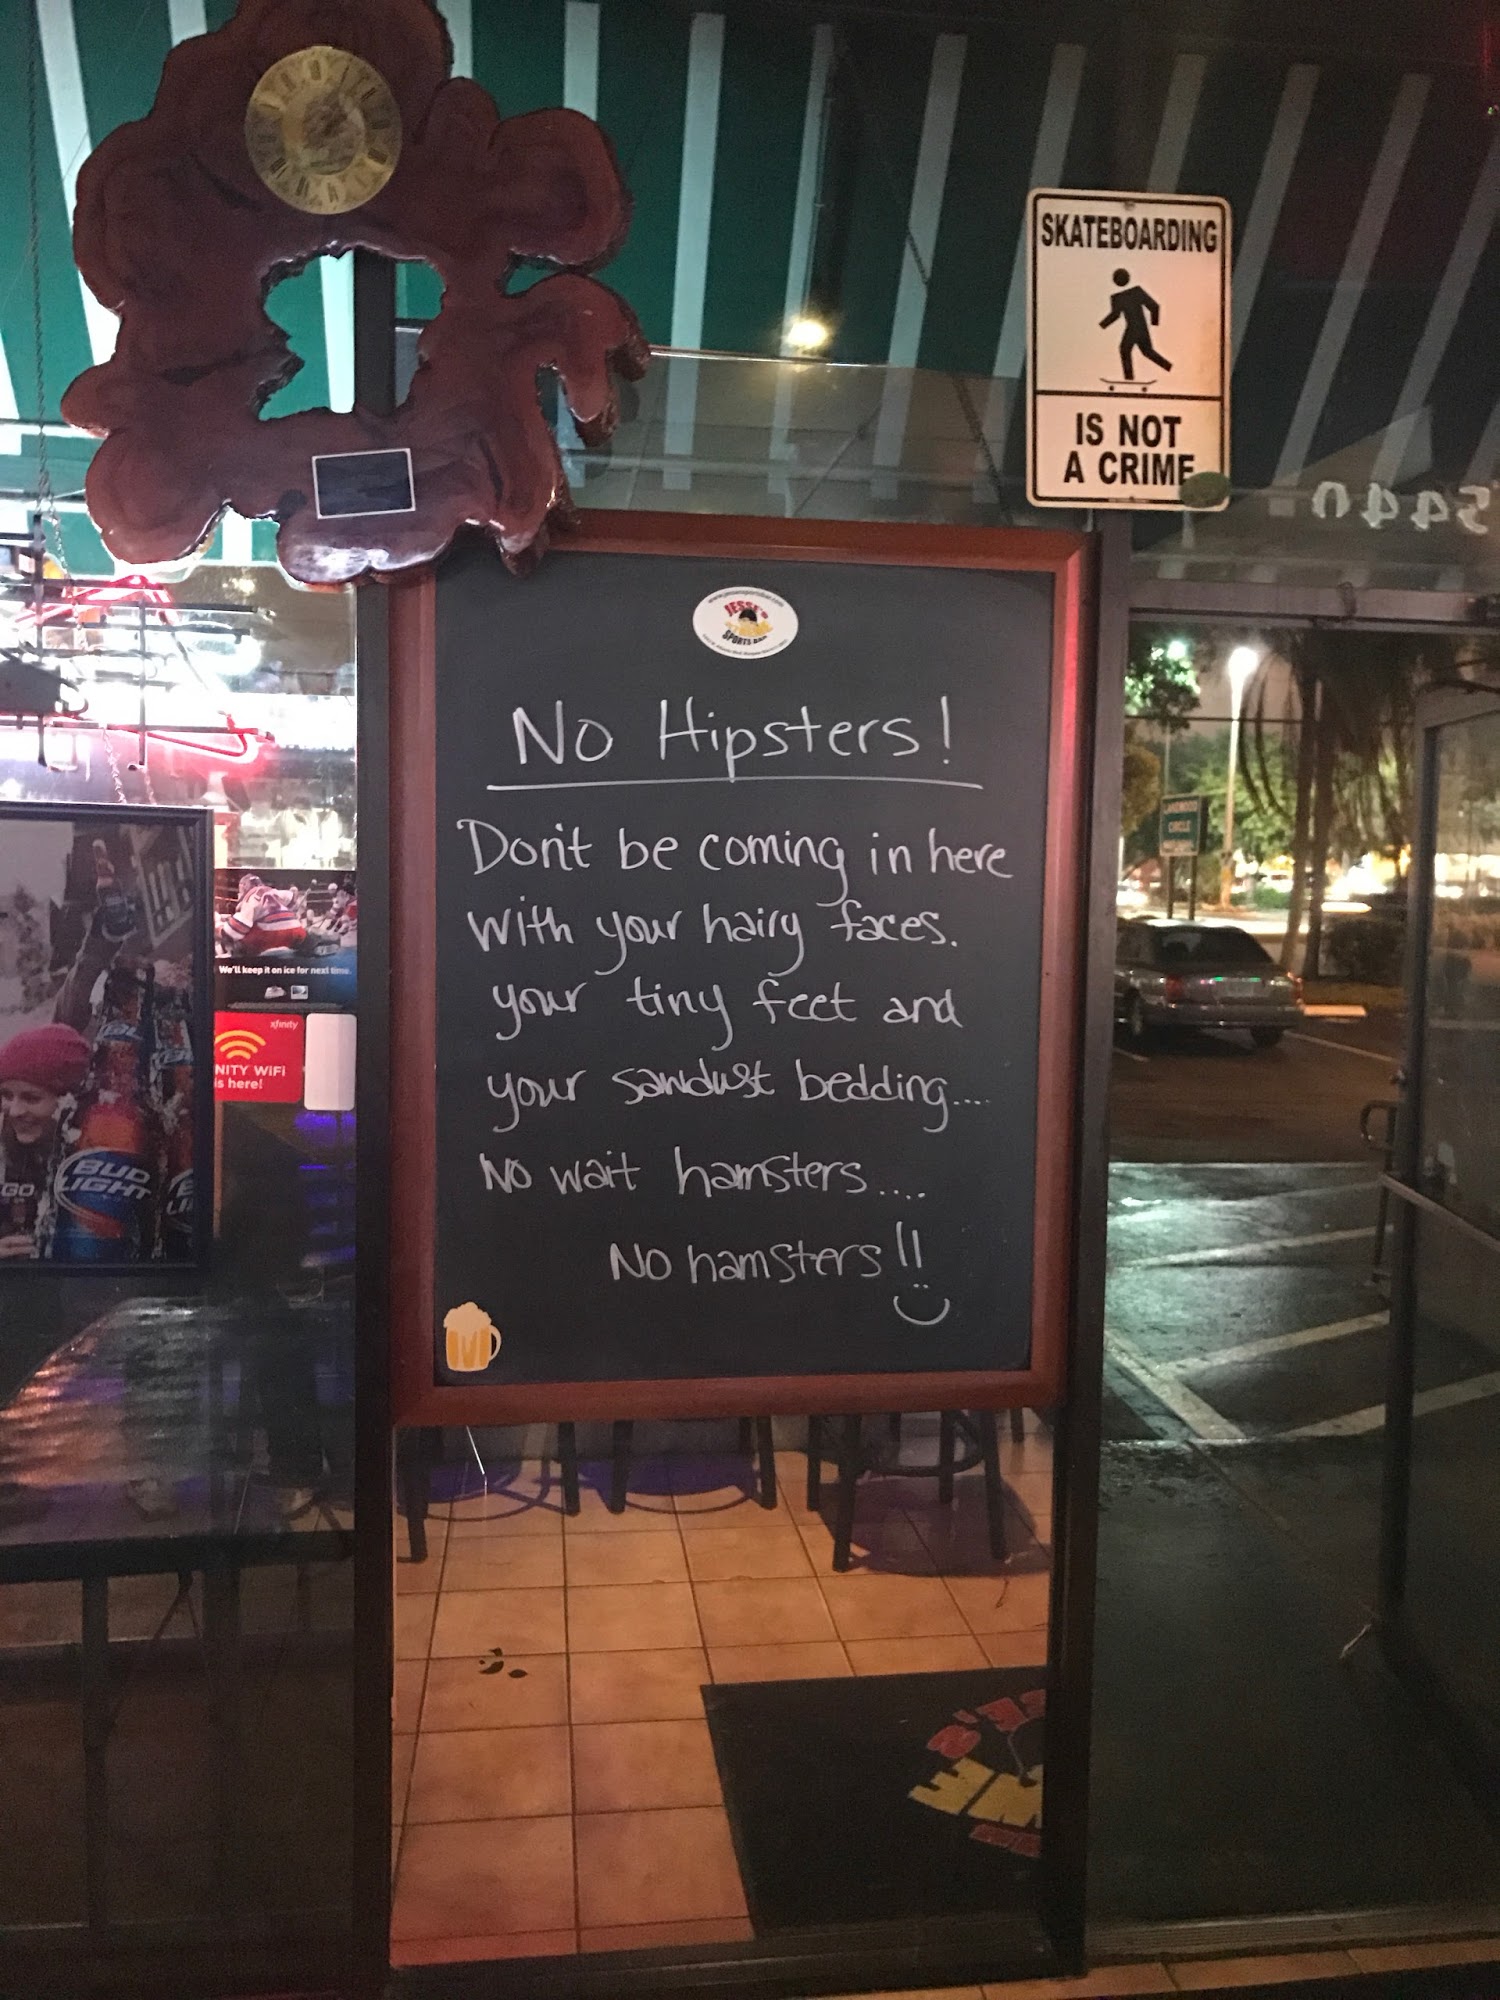 SKATEBOARDING
IS NOT
A CRIME
5440
www.jessessportsbar.com
JESSE'S
SPORTS BAR
No Hipsters!
Don't be coming in here
with your hairy faces.
your tiny feet and
your sawdust bedding....
No wait hamsters....
No hamsters!!
LAKEWOOD
CIRCLE
We'll keep it on ice for next time.
xfinity
NITY WiFi
s here!
BUD
LIGHT
GO